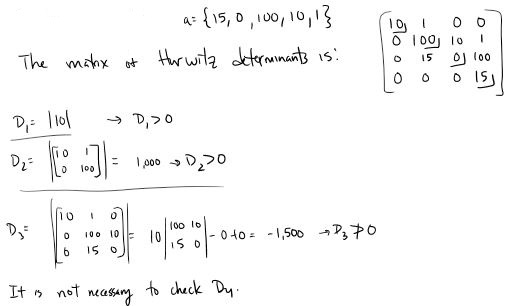 a = {15, 0, 100, 10, 1}
The matrix of Hurwitz determinants is:
[10 1 0 0
0 100 10 1
0 15 0 100
0 0 0 15]
D₁ = |10| → D₁ > 0
D₂ = |[10 1
0 100]| = 1,000 → D₂ > 0
D₃ = |[10 1 0
0 100 10
0 15 0]| = 10 |100 10
15 0| - 0 + 0 = -1,500 → D₃ ≯ 0
It is not necessary to check D₄.